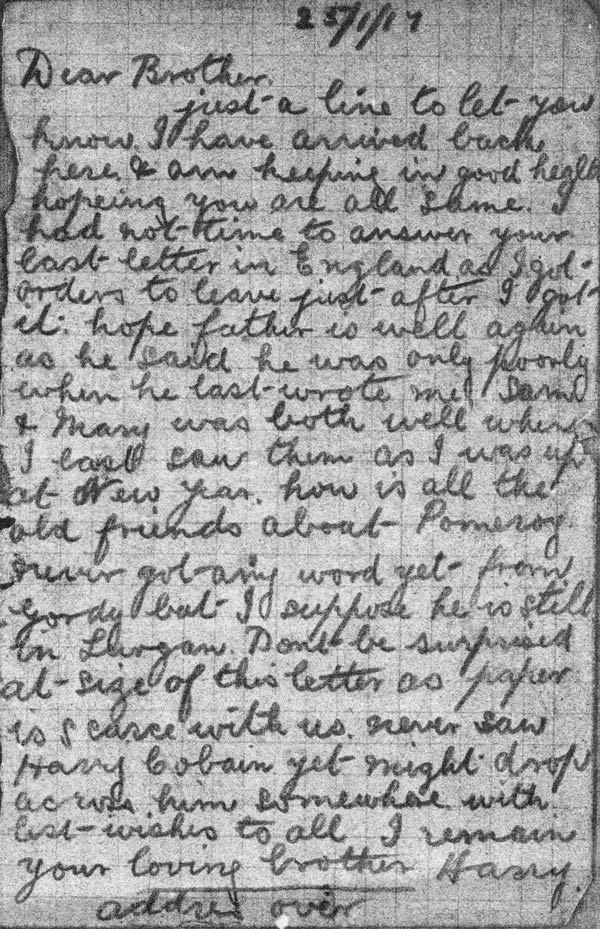 25/1/17
Dear Brother.
just a line to let you
know I have arrived back
here & am keeping in good heglth
hopeing you are all same. I
had not time to answer your
last letter in England as I got
orders to leave just after I got
it. hope father is well again
as he said he was only poorly
when he last wrote me. Sam
& Mary was both well when
I last saw them as I was up
at New Year. how is all the
old friends about Pomeroy.
never got any word yet from
Gordy but I suppose he is still
in Lurgan. Dont be surprised
at size of this letter as paper
is scarce with us. never saw
Harry Cobain yet might drop
across him somewhere with
best wishes to all I remain
your loving brother Harry.
addres over